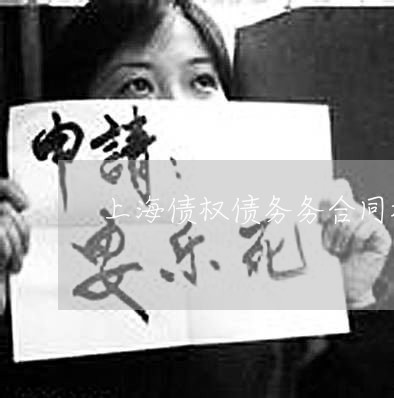 申請：
上海债权债务务合同
安乐死